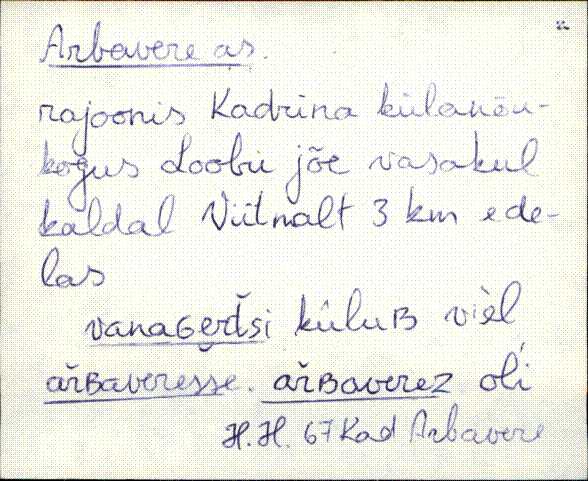 Arbavere as.
rajoonis Kadrina külanõu-
kogus Loobu jõe vasakul
kaldal Viitnalt 3 km ede-
las
vanaɢeřtsi küluʙ vièl
ařʙaveresse. ařʙaverez oli
H.H. 67 Kad Arbavere